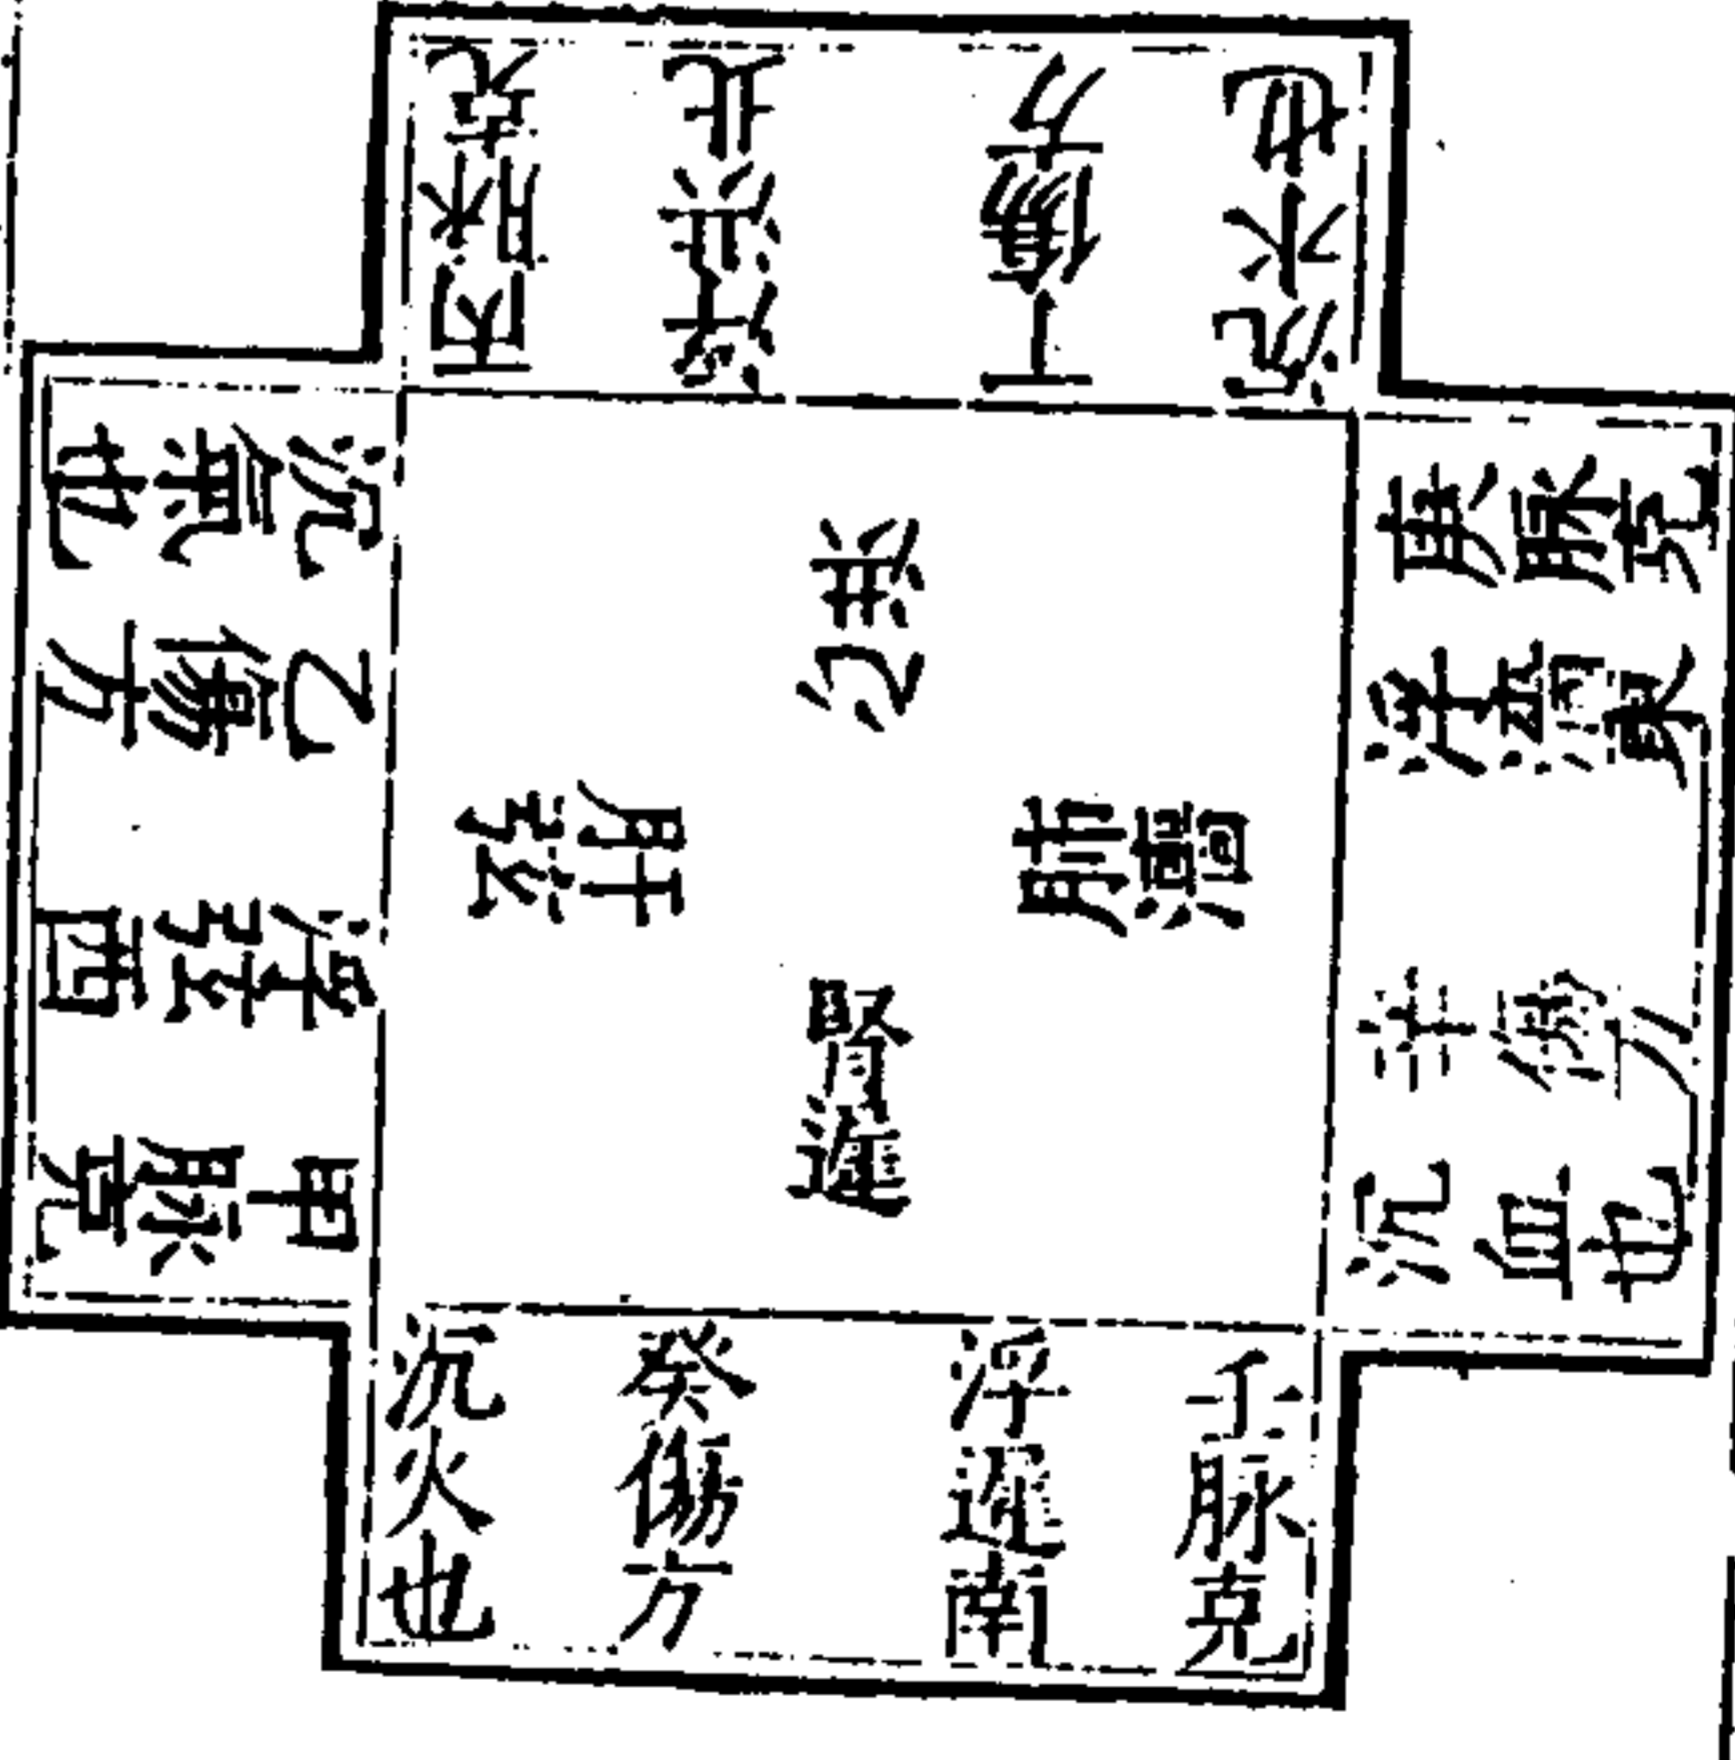 丙脉克
浮洪北
丁傷方
沉水也
庚脉克
浮濇東
辛傷方
沉血也
壬脉克
浮遲南
癸傷方
沉火也
甲脉克
浮弦西
乙傷方
沉氣也
心洪
肺濇
腎遲
肝弦